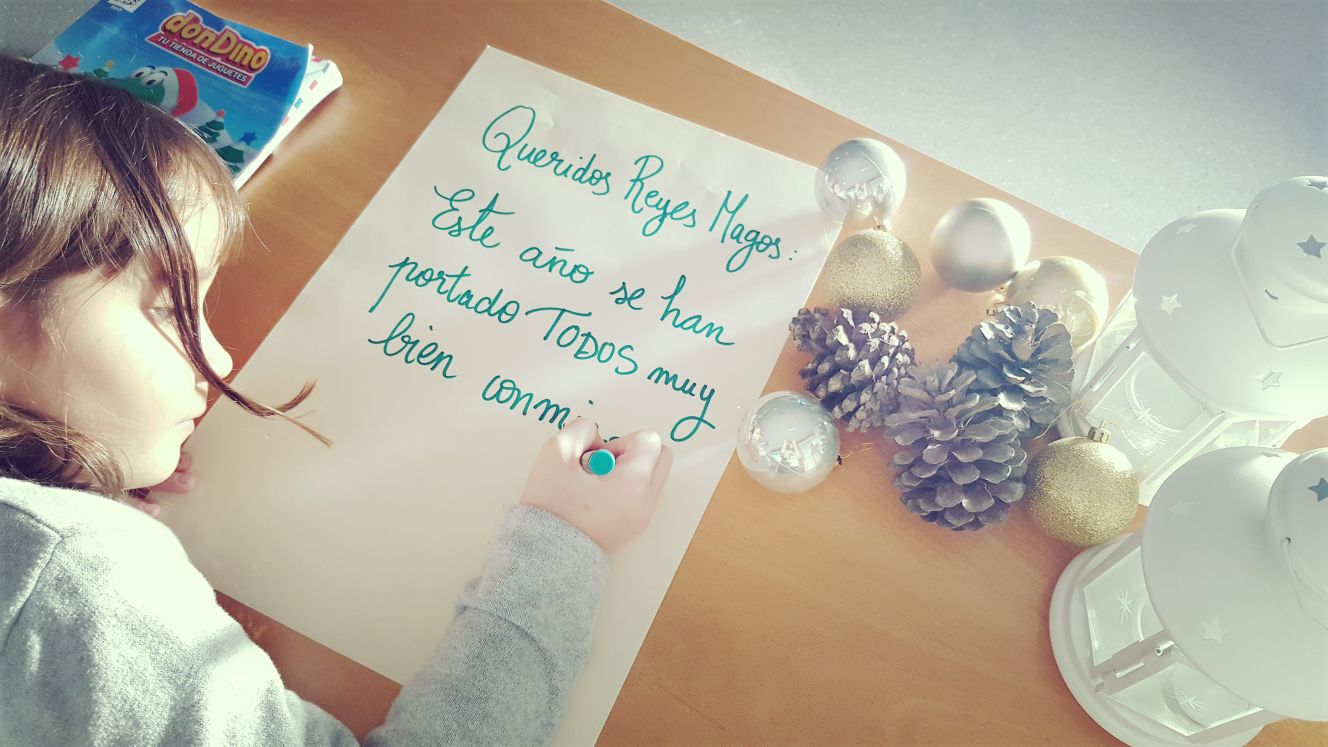 donDino
TU TIENDA DE JUGUETES
Queridos Reyes Magos:
Este año se han
portado TODOS muy
bien conmi